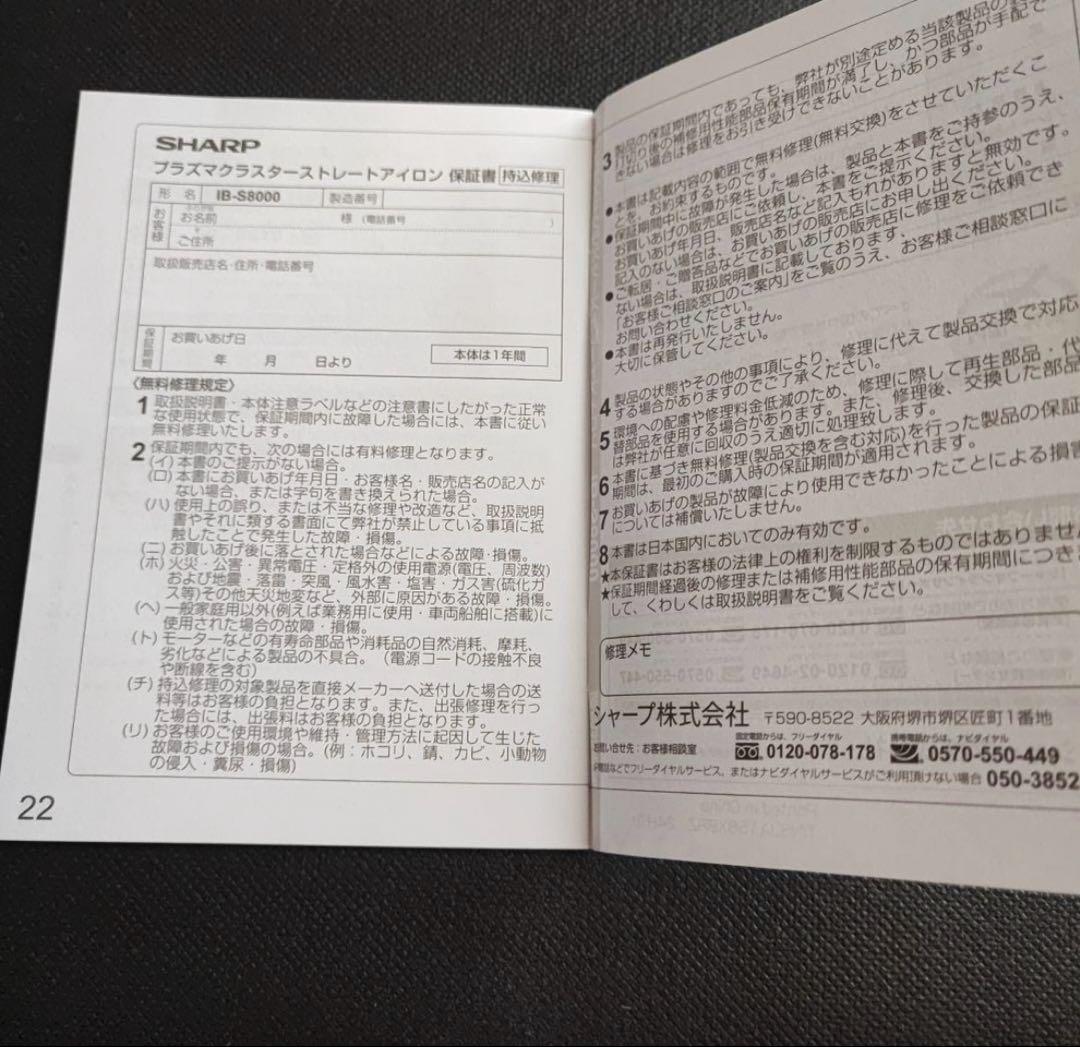 SHARP
プラズマクラスターストレートアイロン 保証書 持込修理
形 名 IB-S8000 製造番号
お客様
お名前 様 (電話番号 )
ご住所
取扱販売店名・住所・電話番号
保証期間
お買いあげ日
年 月 日より
本体は1年間
〈無料修理規定〉
1 取扱説明書・本体注意ラベルなどの注意書にしたがった正常
な使用状態で、保証期間内に故障した場合には、本書に従い
無料修理いたします。
2 保証期間内でも、次の場合には有料修理となります。
(イ) 本書のご提示がない場合。
(ロ) 本書にお買いあげ年月日・お客様名・販売店名の記入が
ない場合、または字句を書き換えられた場合。
(ハ) 使用上の誤り、または不当な修理や改造など、取扱説明
書やそれに類する書面にて弊社が禁止している事項に抵
触したことで発生した故障・損傷。
(ニ) お買いあげ後に落とされた場合などによる故障・損傷。
(ホ) 火災・公害・異常電圧・定格外の使用電源(電圧、周波数)
および地震・落雷・突風・風水害・塩害・ガス害(硫化ガ
ス等)その他天災地変など、外部に原因がある故障・損傷。
(ヘ) 一般家庭用以外(例えば業務用に使用・車両船舶に搭載)に
使用された場合の故障・損傷。
(ト) モーターなどの有寿命部品や消耗品の自然消耗、摩耗、
劣化などによる製品の不具合。(電源コードの接触不良
や断線を含む)
(チ) 持込修理の対象製品を直接メーカーへ送付した場合の送
料等はお客様の負担となります。また、出張修理を行っ
た場合には、出張料はお客様の負担となります。
(リ) お客様のご使用環境や維持・管理方法に起因して生じた
故障および損傷の場合。(例：ホコリ、錆、カビ、小動物
の侵入・糞尿・損傷)
22
3 製品の保証期間内であっても、弊社が別途定める当該製品の
打切り後の補修用性能部品保有期間が満了し、かつ部品が手配で
きない場合は修理をお引き受けできないことがあります。
●本書は記載内容の範囲で無料修理(無料交換)をさせていただくこ
とを、お約束するものです。
●保証期間中に故障が発生した場合は、製品と本書をご持参のうえ、
お買いあげの販売店にご依頼し、本書をご提示ください。
お買いあげ年月日、販売店名など記入もれがありますと無効です。
記入のない場合は、お買いあげの販売店にお申し出ください。
●ご転居・ご贈答品などでお買いあげの販売店に修理をご依頼でき
ない場合は、取扱説明書に記載しております、
「お客様ご相談窓口のご案内」をご覧のうえ、お客様ご相談窓口に
お問い合わせください。
●本書は再発行いたしません。
大切に保管してください。
4 製品の状態やその他の事項により、修理に代えて製品交換で対応
する場合がありますのでご了承ください。
5 環境への配慮や修理料金低減のため、修理に際して再生部品・代
替部品を使用する場合があります。また、修理後、交換した部品
は弊社が任意に回収のうえ適切に処理致します。
6 本書に基づき無料修理(製品交換を含む対応)を行った製品の保証
期間は、最初のご購入時の保証期間が適用されます。
7 お買いあげの製品が故障により使用できなかったことによる損害
については補償いたしません。
8 本書は日本国内においてのみ有効です。
★本保証書はお客様の法律上の権利を制限するものではありませ
★保証期間経過後の修理または補修用性能部品の保有期間につき
して、くわしくは取扱説明書をご覧ください。
修理メモ
シャープ株式会社 〒590-8522 大阪府堺市堺区匠町1番地
お問い合せ先：お客様相談室
固定電話からは、フリーダイヤル
0120-078-178
携帯電話からは、ナビダイヤル
0570-550-449
電話などでフリーダイヤルサービス、またはナビダイヤルサービスがご利用頂けない場合 050-3852